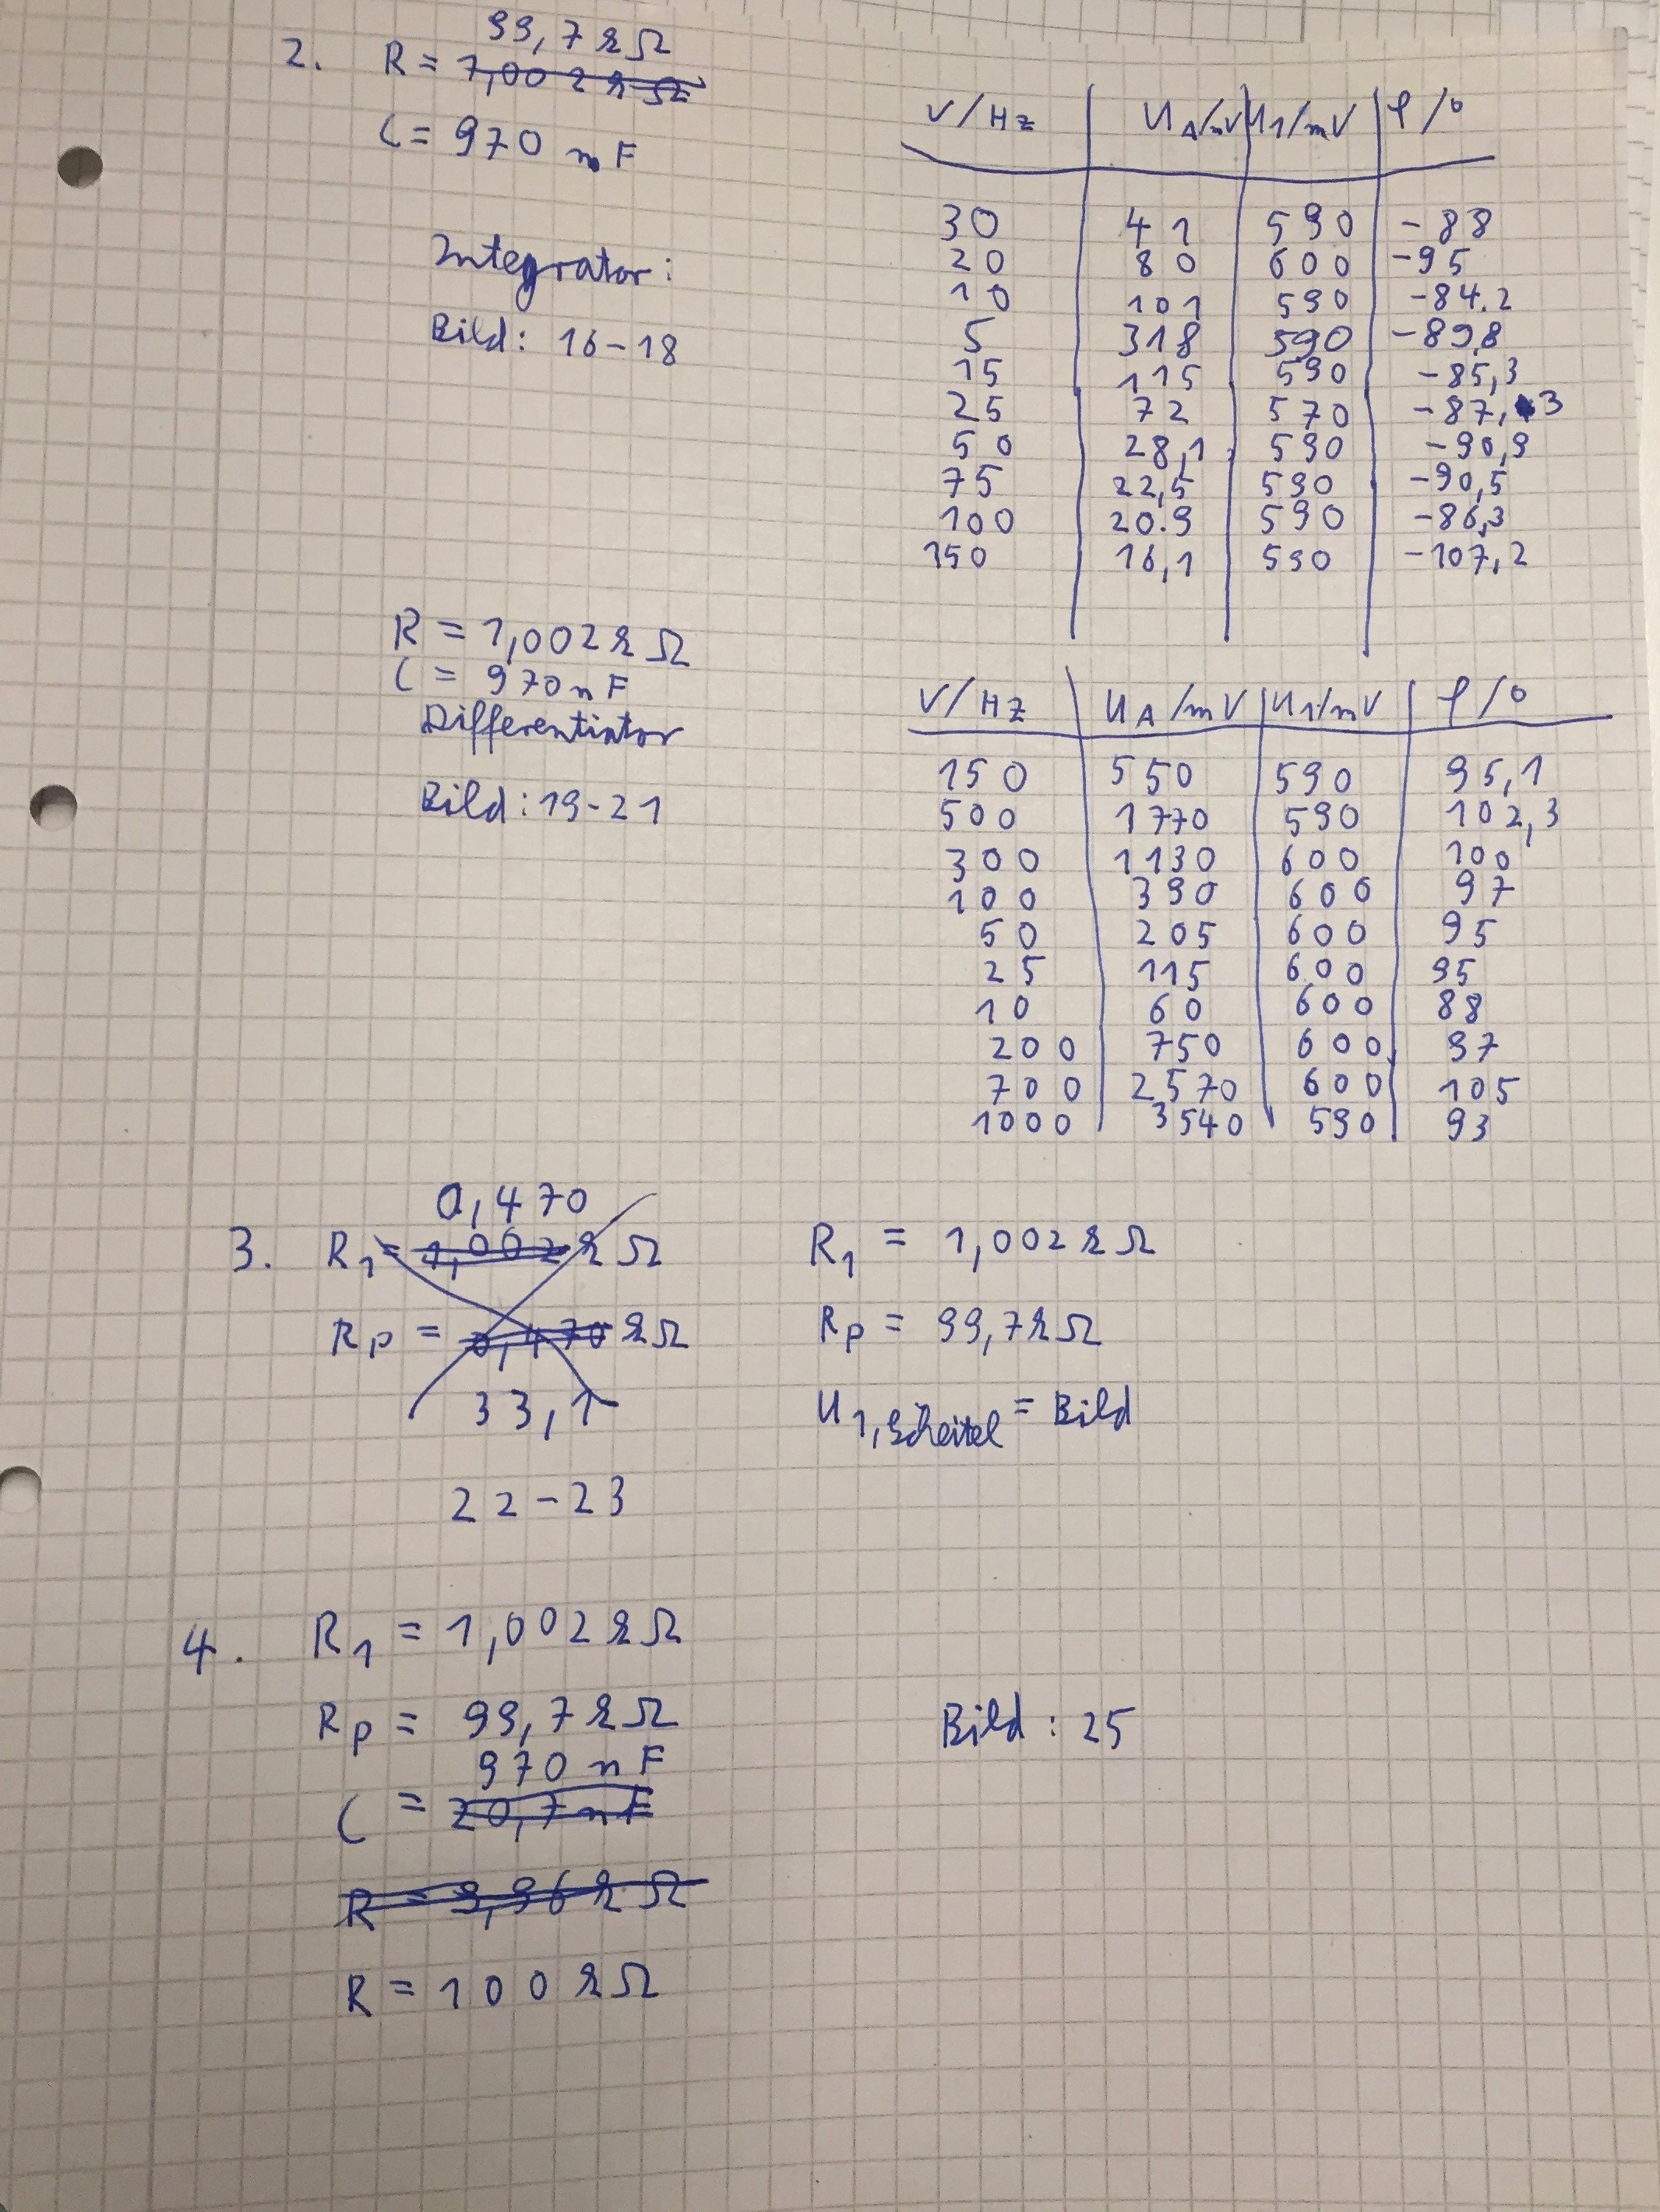 2. R = 99,7 kΩ
1,002 kΩ
C = 970 nF
Integrator:
Bild: 16-18
ν/Hz U_A/mV U_1/mV φ/°
30 41 590 -88
20 80 600 -95
10 101 590 -84.2
5 318 590 -89,8
15 115 590 -85,3
25 72 570 -87,3
50 28,1 590 -90,9
75 22,5 590 -90,5
100 20.9 590 -86,3
150 16,1 590 -107,2
R = 1,002 kΩ
C = 970 nF
Differentiator
Bild: 19-21
ν/Hz U_A/mV U_1/mV φ/°
150 550 590 95,1
500 1770 590 102,3
300 1130 600 100
100 390 600 97
50 205 600 95
25 115 600 95
10 60 600 88
200 750 600 97
700 2570 600 105
1000 3540 590 93
0,470
3. R_1 = 1,002 kΩ
R_P = 0,470 kΩ
33,1
22-23
R_1 = 1,002 kΩ
R_P = 99,7 kΩ
U_1,Scheitel = Bild
4. R_1 = 1,002 kΩ
R_P = 99,7 kΩ
970 nF
C = 20,7 nF
R = 9,96 kΩ
R = 100 kΩ
Bild: 25